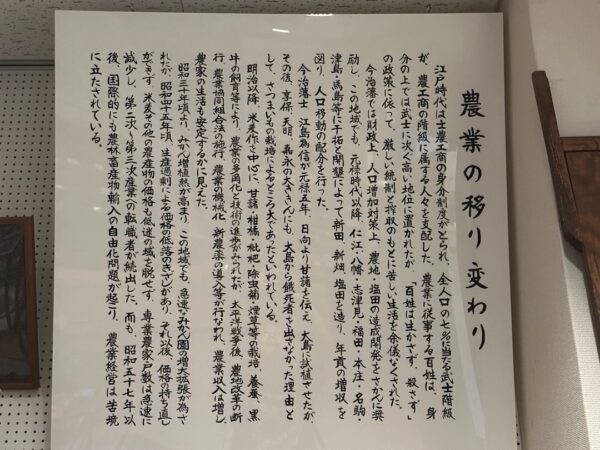 農業の移り変わり
江戸時代は士農工商の身分制度がとられ、全人口の七%に当たる武士階級
が、農工商の階級に属する人々を支配した。農業に従事する百姓は、身
分の上では武士に次ぐ高い地位に置かれたが、「百姓は生かさず、殺さず」
の政策に依って、厳しい統制と搾取のもとに苦しい生活を余儀なくされた。
今治藩では財政上、人口増加対策上、農地・塩田の造成開発をさかんに奨
励し、この地域でも、元禄時代以降、仁江・八幡・志津見・福田・本庄・名駒・
津島・馬島等に干拓と開墾によって新田、新畑、塩田を造り、年貢の増収を
図り、人口移動の配分を行った。
今治藩士 江島為信が元禄五年、日向より甘藷を伝え、大島に試植させたが、
その後、享保、天明、嘉永の大ききんにも、大島から餓死者を出さなかった理由と
して、さつまいもの栽培によるところ大であったといわれている。
明治以降、米麦作を中心に、甘藷・柑橘・枇杷・除虫菊・煙草等の栽培、養蚕、黒
牛の飼育等により、農業の多角化と技術の進歩がみられたが、太平洋戦争後、農地改革の断
行、農業協同組合法の施行、農業の機械化、新農薬の導入等が行なわれ、農業収入は増し、
農家の生活も安定するかに見えた。
昭和三十年頃より、みかん増植熱が高まり、この地域でも、急速なみかん園の増大拡張が為さ
れたが、昭和四十五年頃、生産過剰による価格の低落のきざしがあり、それ以後、価格の持ち直し
ができず、米麦その他の農産物の価格も低迷の域を脱せず、専業農家戸数は急速に
減少し、第二次・第三次産業への転職者が続出した。而も、昭和五十七年以
後、国際的にも農林畜産物輸入の自由化問題が起こり、農業経営は苦境
に立たされている。